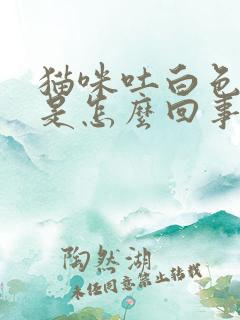 猫咪吐白色
是怎麼回事
陶然湖
未经同意禁止转载